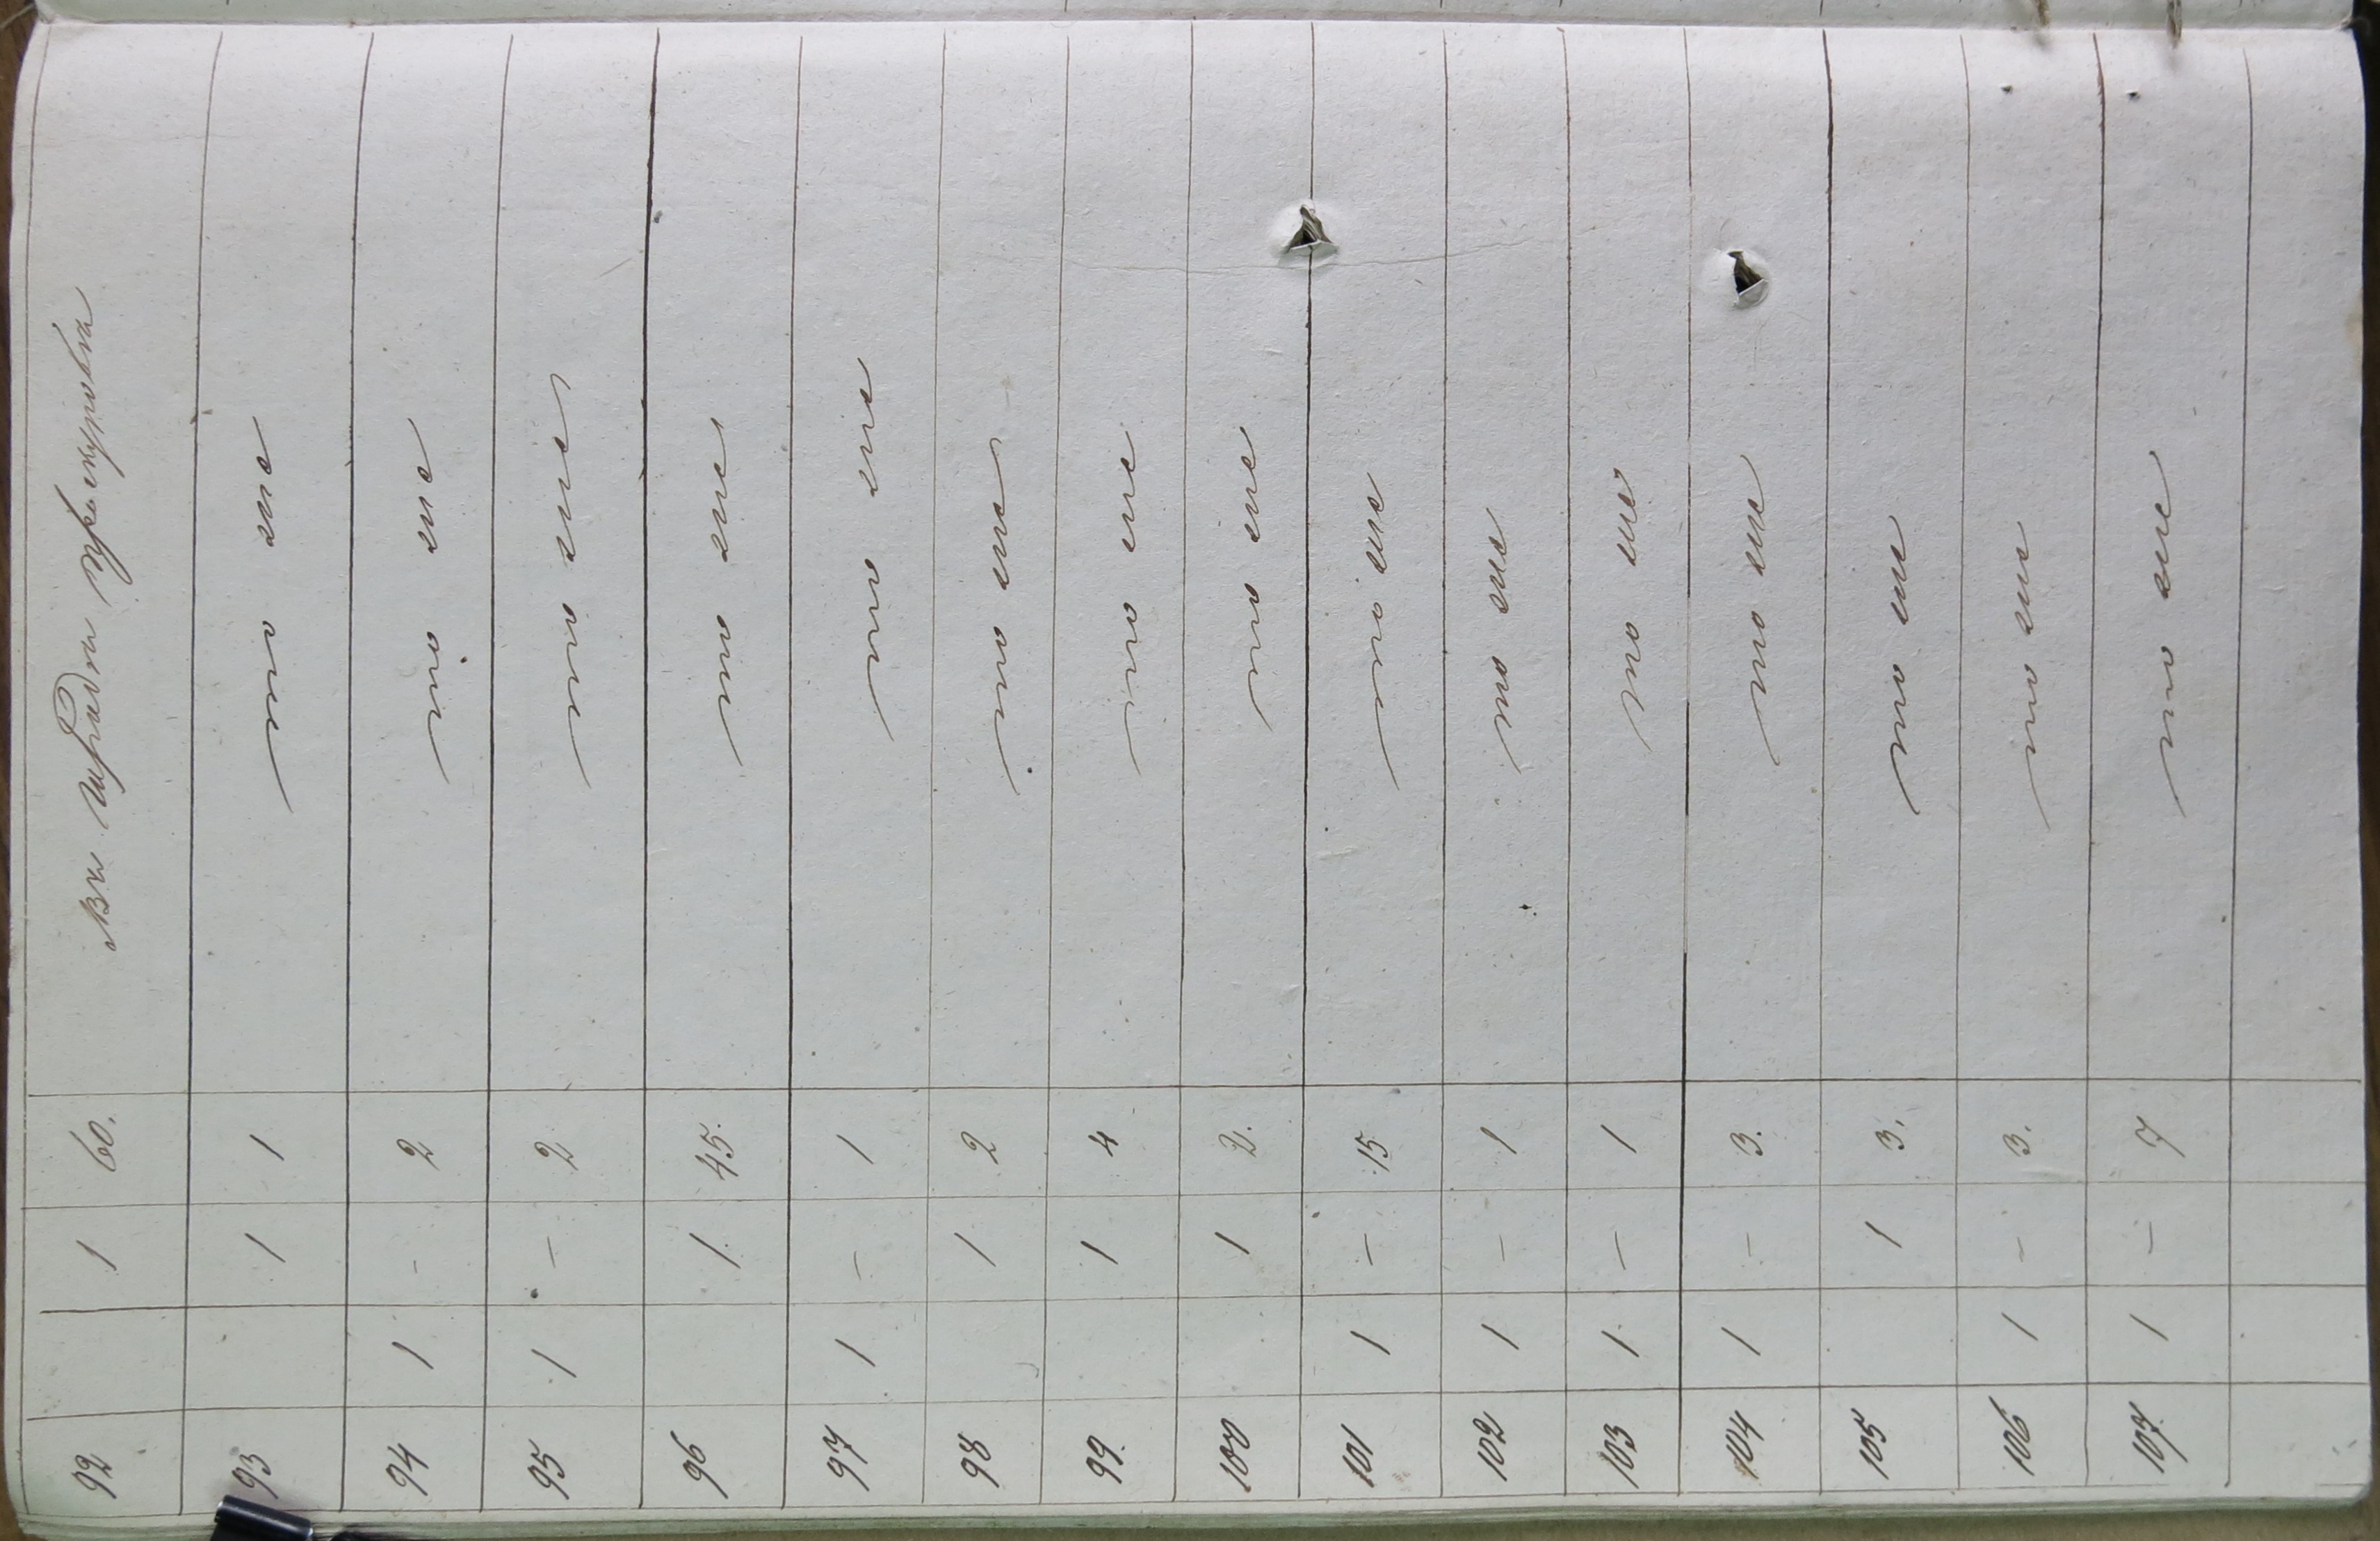 92 1 60. въ
93 1 1 то же
94 1 – 2 то же
95 1 – 2 то же
96 1 45. то же
97 1 – 1 то же
98 1 2 то же
99. 1 4 то же
100 1 2. то же
101 1 – 15 то же
102 1 – 1 то же
103 1 – 1 то же
104 1 – 3. то же
105 1 3. то же
106 1 – 3. то же
107 1 – 7 то же